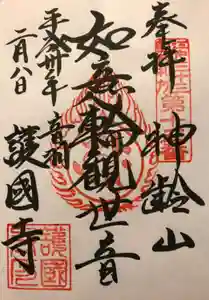 奉拝
神齢山
如意輪觀世音
平成卅年
音羽
二月八日
護國寺